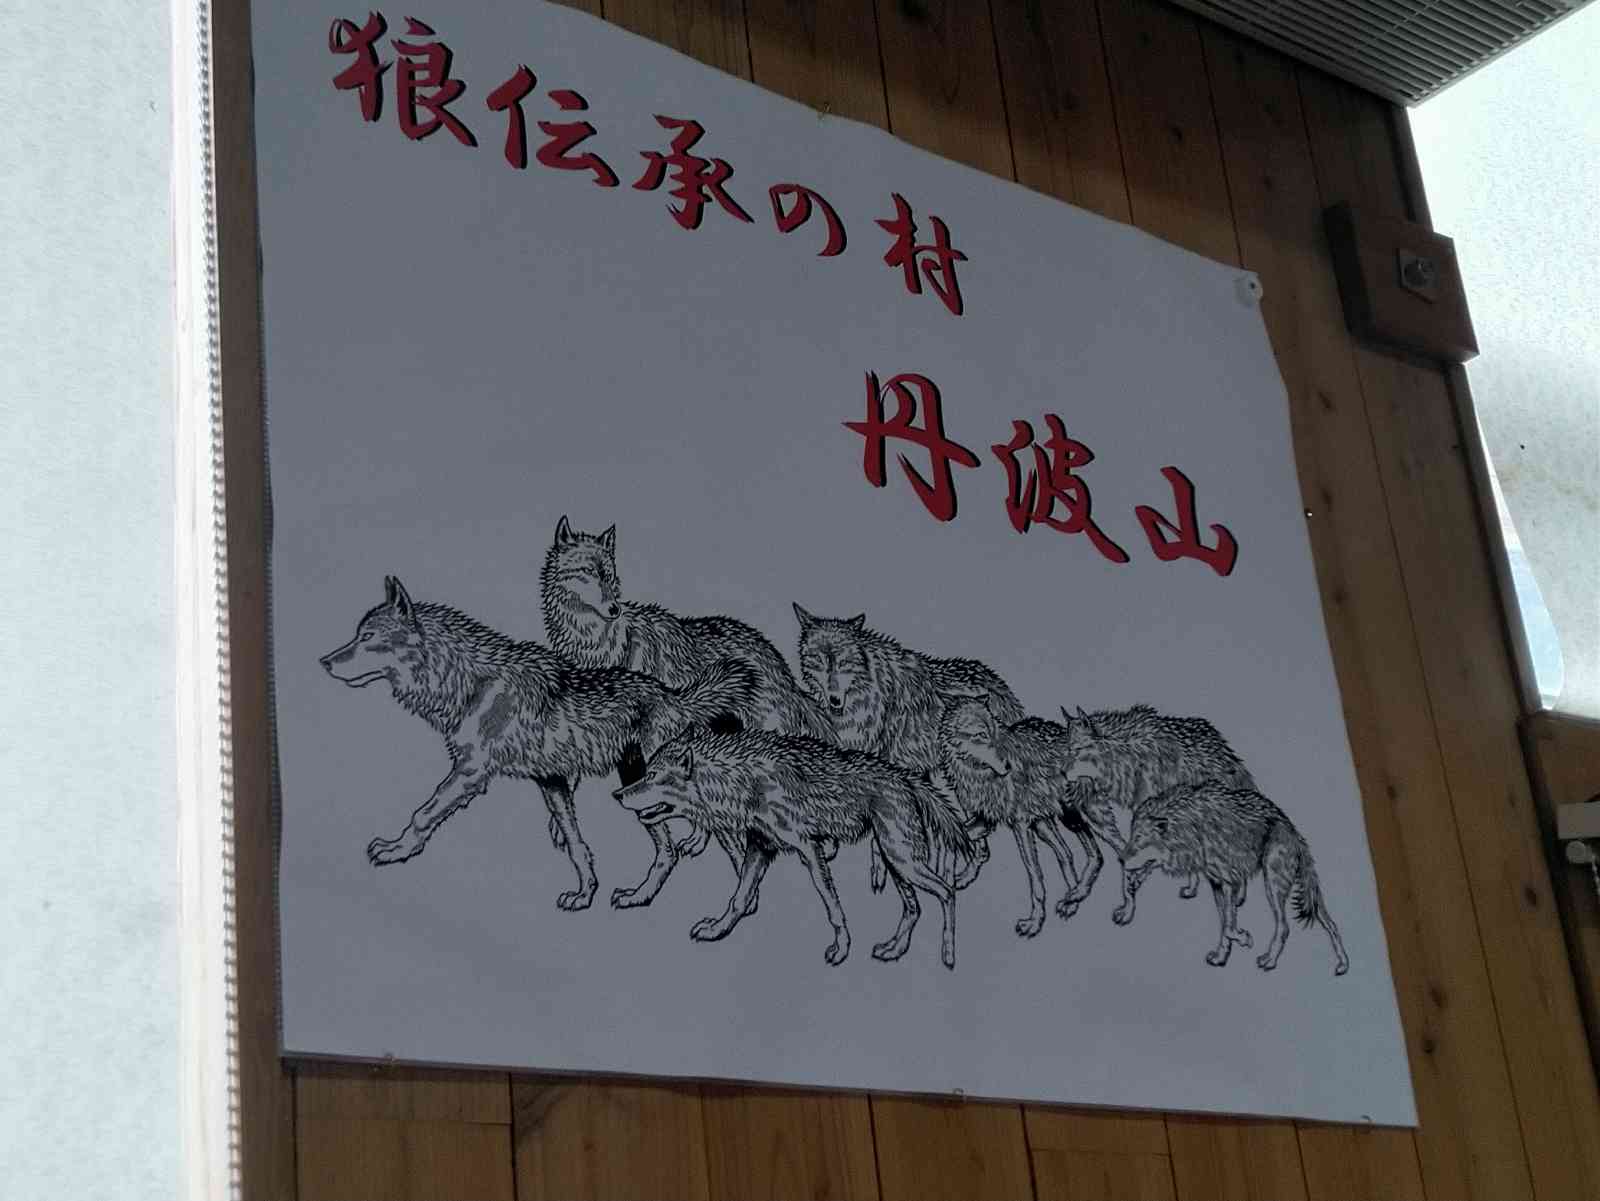 狼伝承の村
丹波山